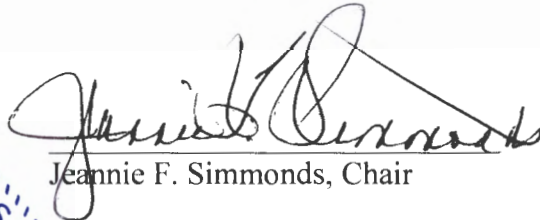 Jeannie F. Simmonds
Jeannie F. Simmonds, Chair